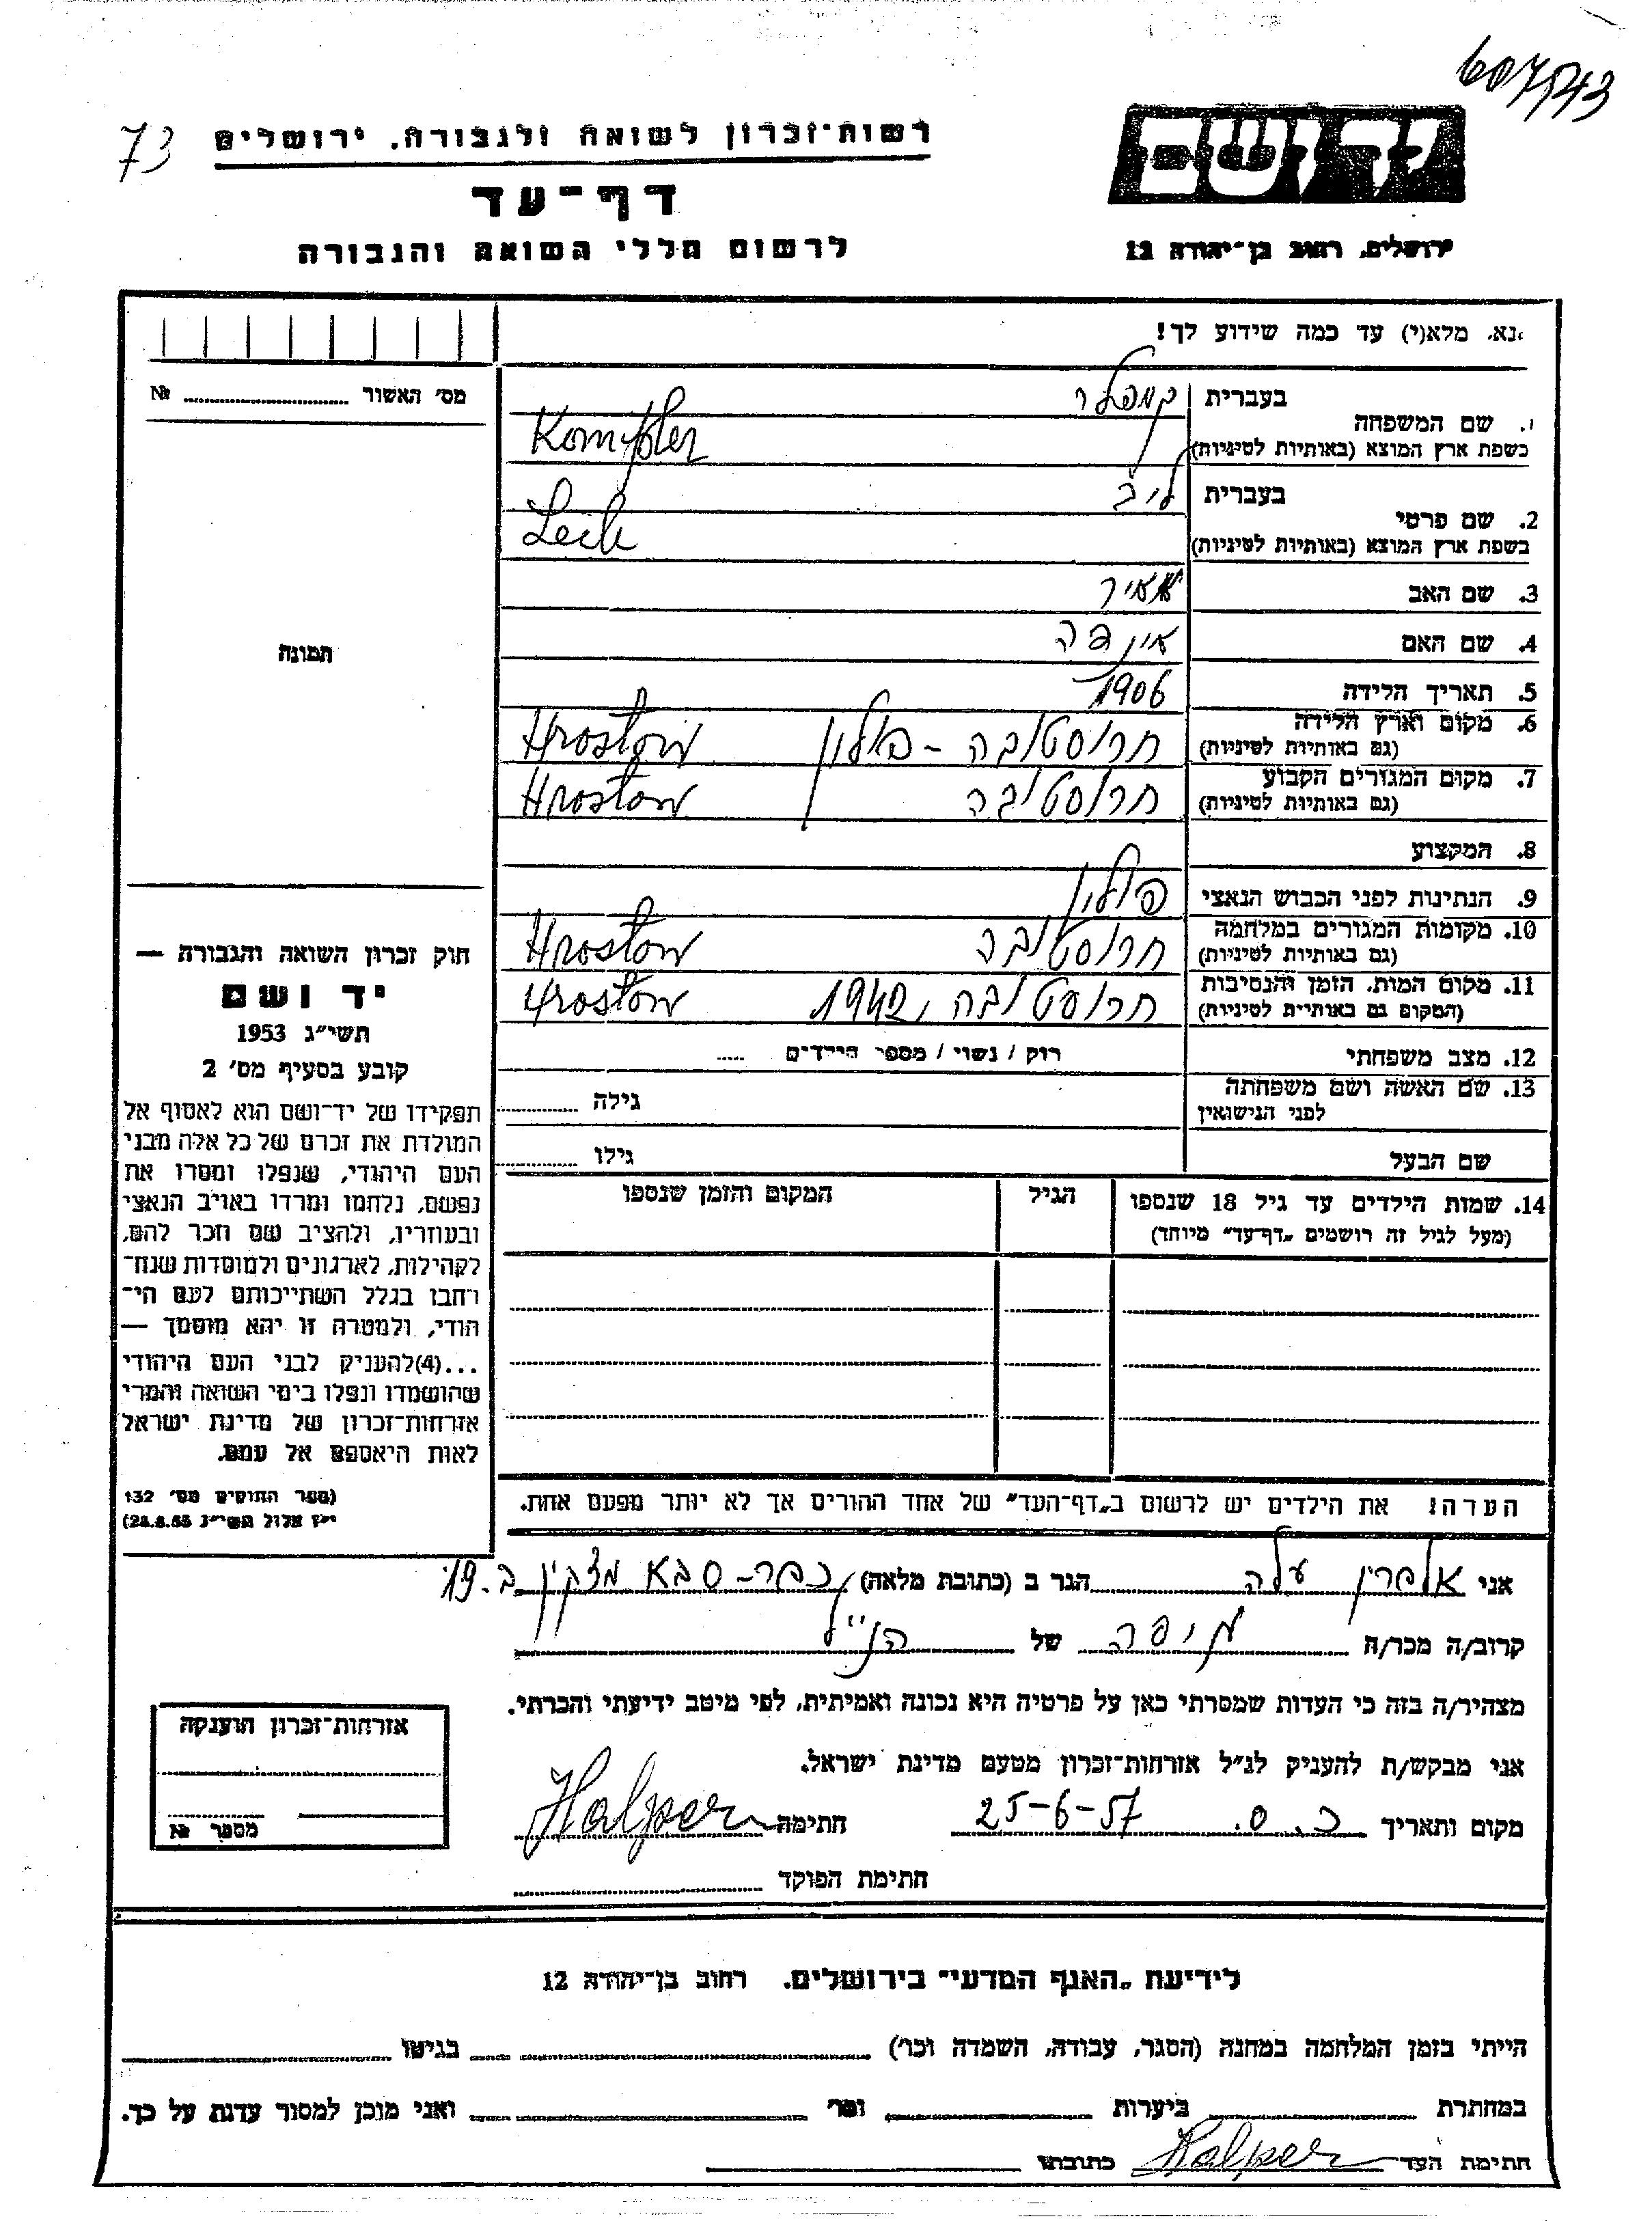 607/543
73
רשות־זכרון לשואה ולגבורה. ירושלים
יד ושם
דף־עד
לרשום חללי השואה והגבורה
ירושלים, רחוב בן־יהודה 12
נא. מלא(י) עד כמה שידוע לך!
מס׳ האשור № 
בעברית
קמפלר
1. שם המשפחה
בשפת ארץ המוצא (באותיות לטיניות)
Kompfler
בעברית
לייב
2. שם פרטי
בשפת ארץ המוצא (באותיות לטיניות)
Leib
3. שם האב
מאיר
תמונה
4. שם האם
5. תאריך הלידה
1906
6. מקום וארץ הלידה
(גם באותיות לטיניות)
חרוסטובה - פולין Hrostow
7. מקום המגורים הקבוע
(גם באותיות לטיניות)
חרוסטובה Hrostow
8. המקצוע
9. הנתינות לפני הכבוש הנאצי
פולין
10. מקומות המגורים במלחמה
(גם באותיות לטיניות)
חרוסטובה Hrostow
11. מקום המות. הזמן והנסיבות
(המקום גם באותיות לטיניות)
חרוסטובה, 1942 Hrostow
12. מצב משפחתי
רוק / נשוי / מספר הילדים
13. שם האשה ושם משפחתה
לפני הנישואין
גילה
שם הבעל
גילו
14. שמות הילדים עד גיל 18 שנספו
(מעל לגיל זה רושמים „דף־עד״ מיוחד)
הגיל
המקום והזמן שנספו
הערה! את הילדים יש לרשום ב„דף־העד״ של אחד ההורים אך לא יותר מפעם אחת.
חוק זכרון השואה והגבורה —
יד ושם
תשי״ג 1953
קובע בסעיף מס׳ 2
תפקידו של יד־ושם הוא לאסוף אל
המולדת את זכרם של כל אלה מבני
העם היהודי, שנפלו ומסרו את
נפשם, נלחמו ומרדו באויב הנאצי
ובעוזריו, ולהציב שם וזכר להם,
לקהילות, לארגונים ולמוסדות שנח־
רחבו בגלל השתייכותם לעם הי־
הודי, ולמטרה זו יהא מוסמך —
...(4)להעניק לבני העם היהודי
שהושמדו ונפלו בימי השואה והמרי
אזרחות־זכרון של מדינת ישראל
לאות היאספם אל עמם.
(ספר החוקים מס׳ 132
י״ז אלול תשי״ג 28.8.53)
אני אלפרין עלה הגר ב (כתובת מלאה) כפר-סבא מצקין ב. 19
קרוב/ה מכר/ה של הנ״ל
מצהיר/ה בזה כי העדות שמסרתי כאן על פרטיה היא נכונה ואמיתית, לפי מיטב ידיעתי והכרתי.
אני מבקש/ת להעניק לנ״ל אזרחות־זכרון מטעם מדינת ישראל.
מקום ותאריך כ.ס. 25-6-57 חתימה Halper
חתימת הפוקד
אזרחות־זכרון הוענקה
מספר №
לידיעת „האגף המדעי״ בירושלים. רחוב בן־יהודה 12
הייתי בזמן המלחמה במחנה (הסגר, עבודה, השמדה וכו׳) בגיטו
במחתרת ביערות וכו׳ ואני מוכן למסור עדות על כך.
חתימת העד Halper כתובתו